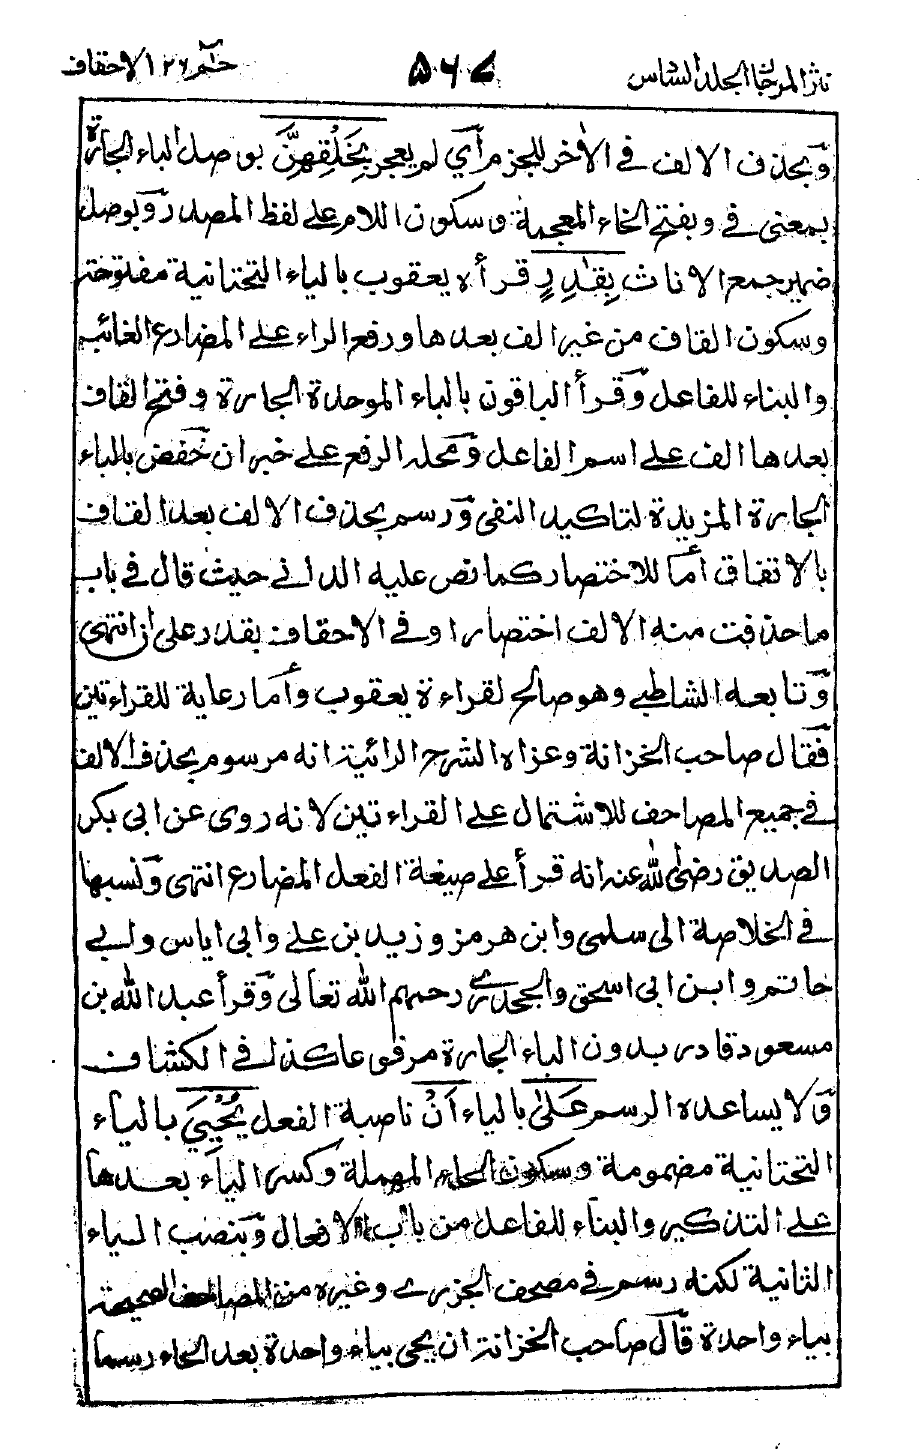 نثر المرجان الجلد السادس ۵۶۷ حٰم ٢٦ الاحقاف
وَبحذف الالف في الاٰخر للجزم أي لم يعجز بِخَلْقِهِنَّ بوصل الباء الجارة
بمعنى في وبفتح الخاء المعجمة وسكون اللام على لفظ المصدر وَبوصل
ضمير جمع الاناث بِقٰدِرٍ قرأه يعقوب بالياء التحتانية مفتوحة
وسكون القاف من غير الف بعدها ورفع الراء على المضارع الغائب
والبناء للفاعل وَقرأ الباقون بالباء الموحدة الجارة وفتح القاف
بعدها الف على اسم الفاعل وَمحله الرفع على خبر ان خفض بالباء
الجارة المزيدة لتاكيد النفى وَرسم بحذف الالف بعد القاف
بالاتفاق أما للاختصار كما نص عليه الداني حيث قال في باب
ما حذفت منه الالف اختصارا وفي الاحقاف بقدر على ان انتهى
وَتابعه الشاطبي وهو صالح لقراءة يعقوب وأما رعاية للقراءتين
فَقال صاحب الخزانة وعزاه الشرح الرائية انه مرسوم بحذف الالف
في جميع المصاحف للاشتمال على القراءتين لانه روى عن ابي بكر
الصديق رضي الله عنه انه قرأ على صيغة الفعل المضارع انتهى وَنسبها
في الخلاصة الى سلمى وابن هرمز وزيد بن علي وابى اياس وابي
حاتم وابن ابي اسحق والجحدري رحمهم الله تعالى وَقرأ عبد الله بن
مسعود قادر بدون الباء الجارة مرفوعا كذا في الكشاف
وَلا يساعده الرسم عَلىٰ بالياء اَنْ ناصبة الفعل يُحْيِيَ بالياء
التحتانية مضمومة وسكون الحاء المهملة وكسر الياء بعدها
على التذكير والبناء للفاعل من باب الافعال وَبنصب الياء
الثانية لكنه رسم في مصحف الجزري وغيره من المصاحف الصحيحة
بياء واحدة قَال صاحب الخزانة ان يحى بياء واحدة بعد الحاء رسما